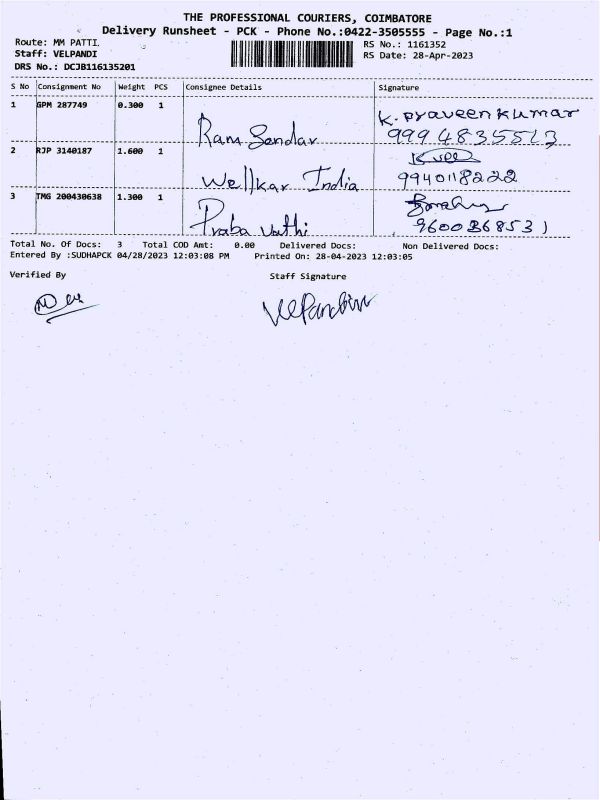 THE PROFESSIONAL COURIERS, COIMBATORE
Delivery Runsheet - PCK - Phone No.:0422-3505555 - Page No.:1
Route: MM PATTI. RS No.: 1161352
Staff: VELPANDI RS Date: 28-Apr-2023
DRS No.: DCJB116135201
S No Consignment No Weight PCS Consignee Details Signature
1 GPM 287749 0.300 1 Ram Sendar K. Praveenkumar
9994835513
2 RJP 3140187 1.600 1 Wellkar India
9940118222
3 TMG 200430638 1.300 1 Praba vathi
9600368531
Total No. Of Docs: 3 Total COD Amt: 0.00 Delivered Docs: Non Delivered Docs:
Entered By :SUDHAPCK 04/28/2023 12:03:08 PM Printed On: 28-04-2023 12:03:05
Verified By Staff Signature
VelPandian